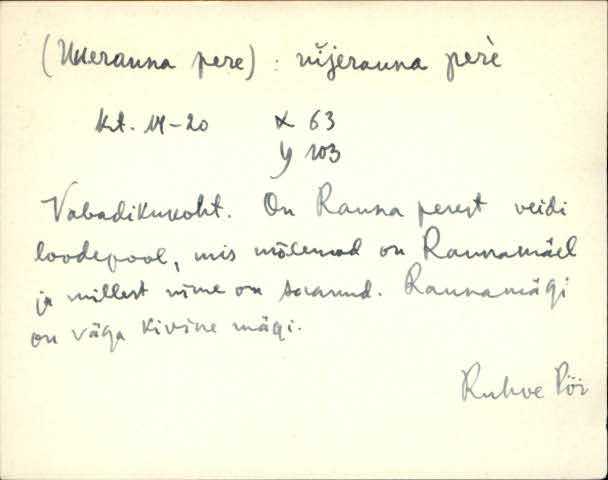 (Uuerauna pere) : nijerauna perè
kt. 19-20 x 63
y 103
Vabadikukoht. On Rauna perest veidi
loodepool, mis mõlemad on Raunamäel
ja millest nime on saanud. Raunamägi
on väga kivine mägi.
Ruhve Pöi